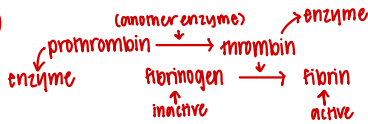 (another enzyme)
enzyme
prothrombin → thrombin
enzyme
fibrinogen → fibrin
inactive
active